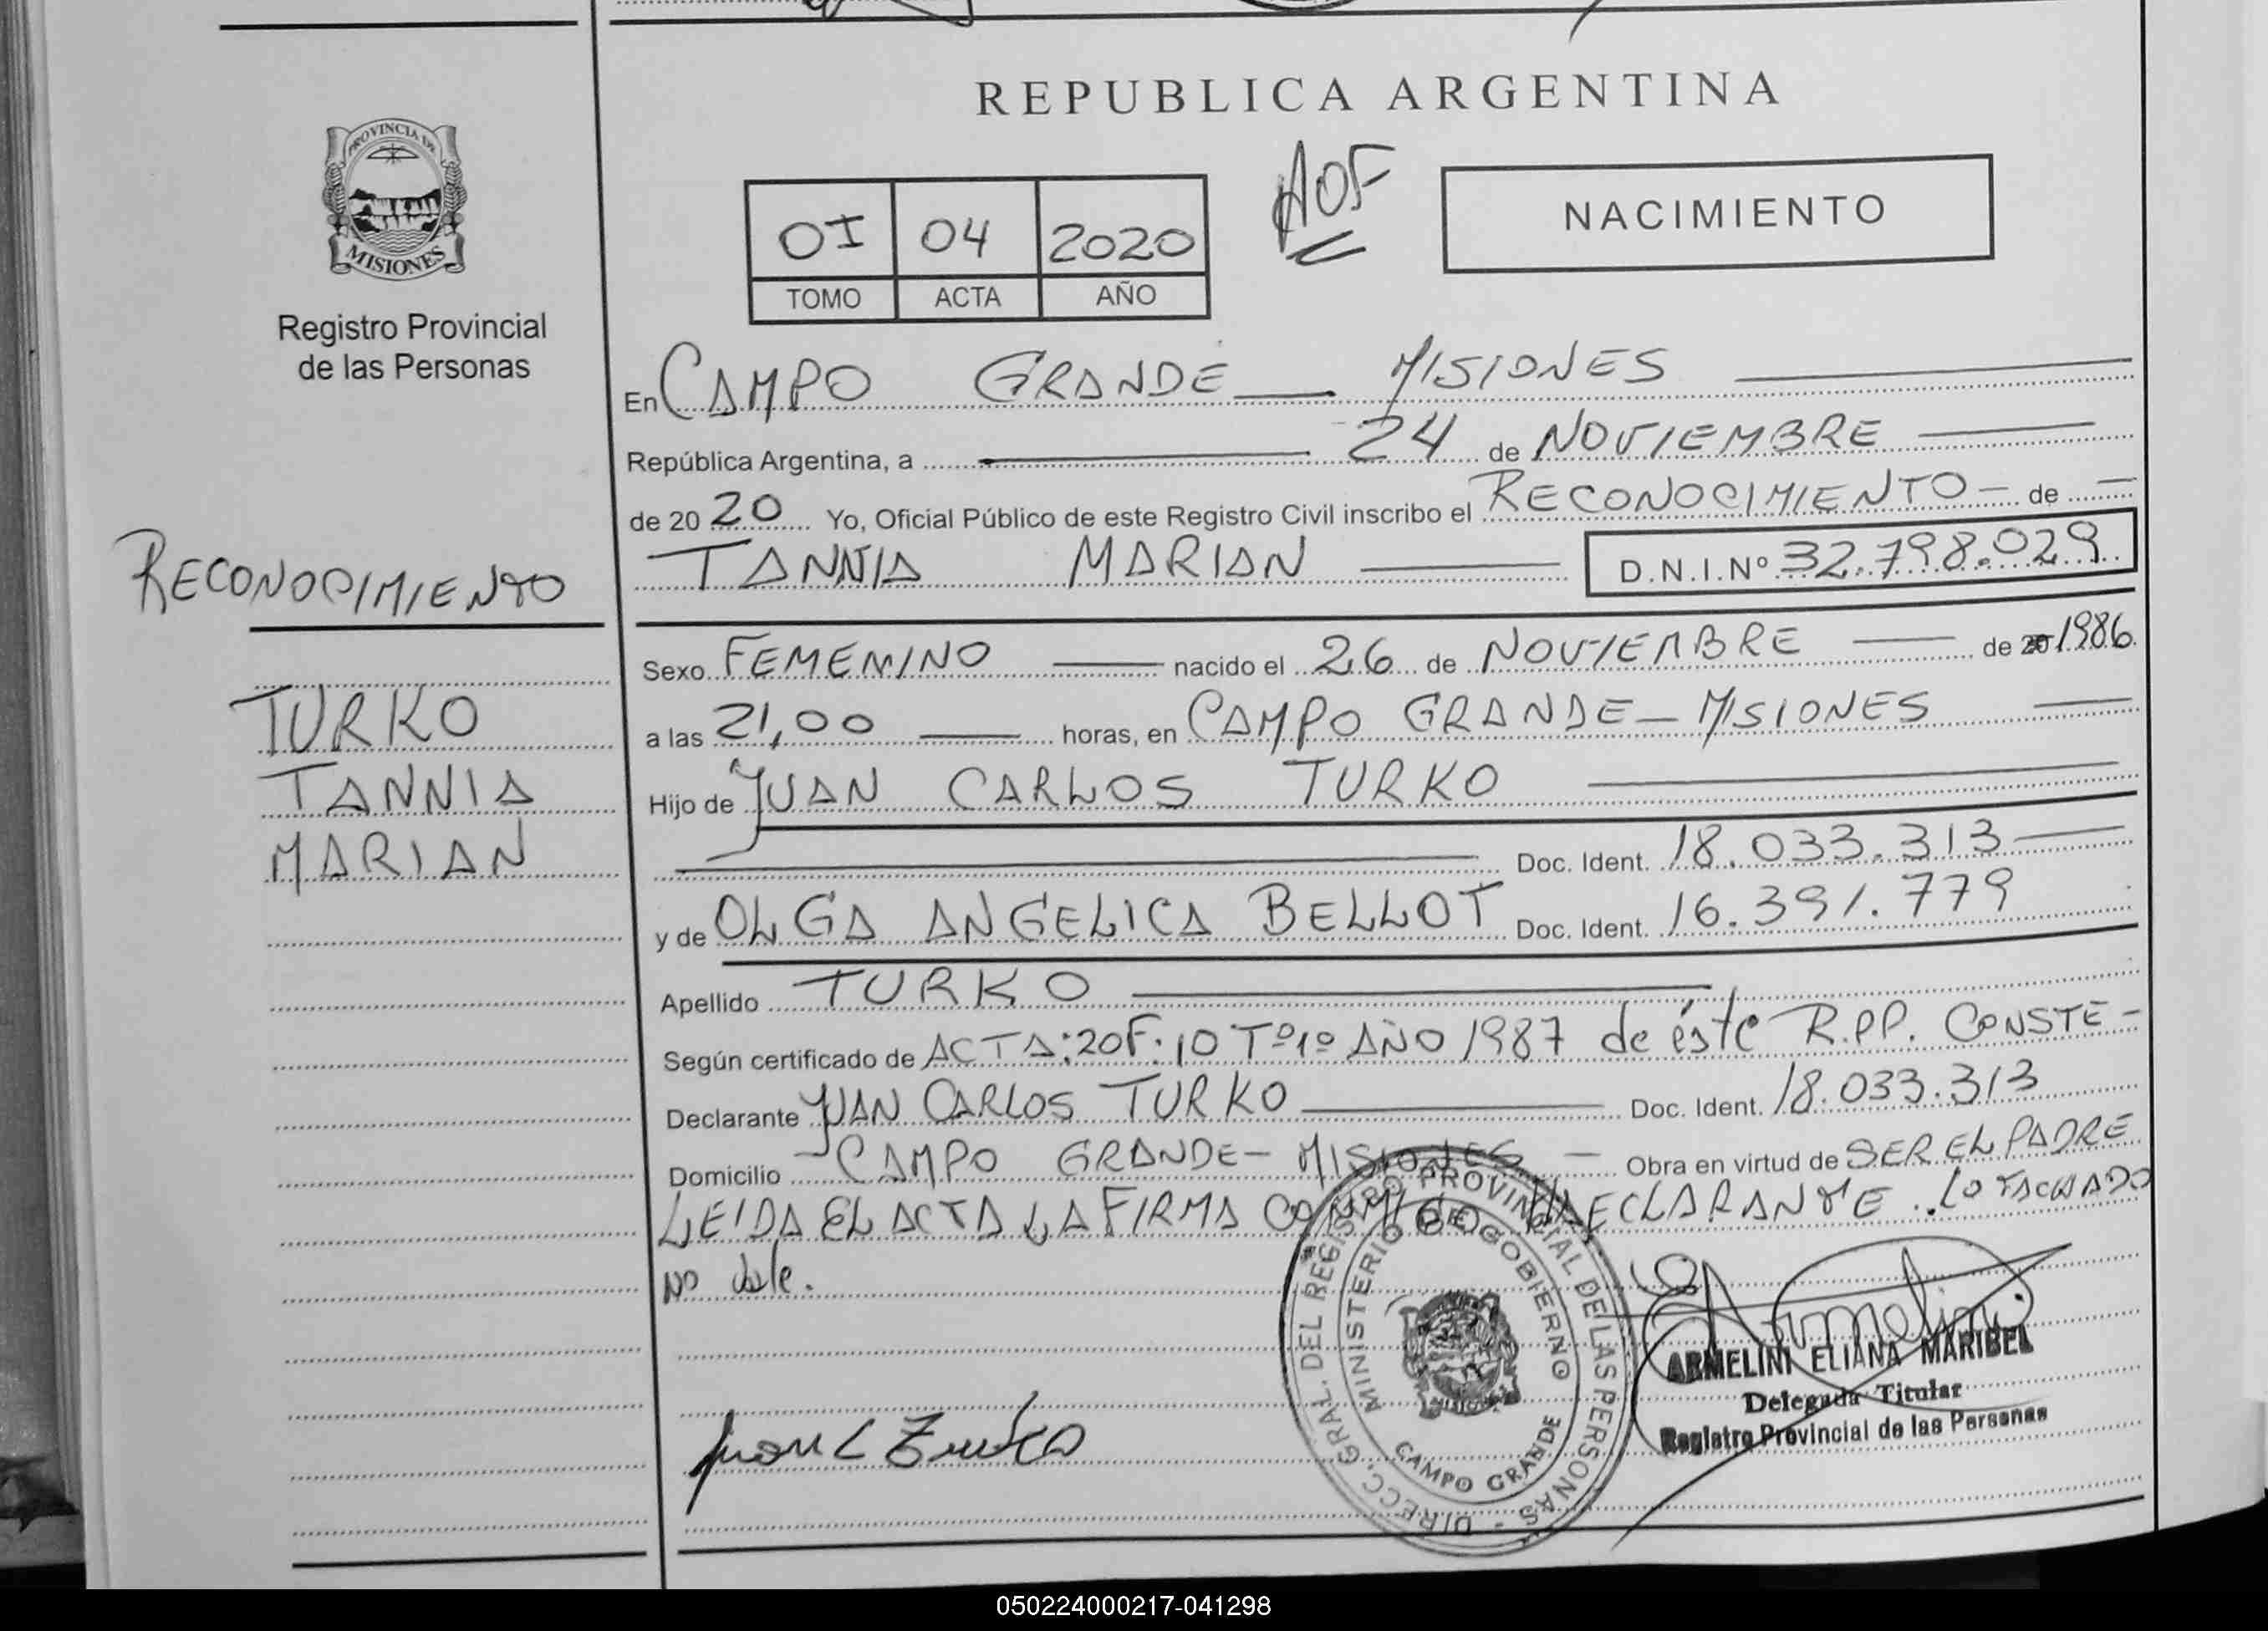 REPUBLICA ARGENTINA
PROVINCIA DE
MISIONES
Registro Provincial
de las Personas
OI 04 2020
TOMO ACTA AÑO
AOF
NACIMIENTO
En CAMPO GRANDE — MISIONES
República Argentina, a 24 de NOVIEMBRE
de 20 20 Yo, Oficial Público de este Registro Civil inscribo el RECONOCIMIENTO - de
TANNIA MARIAN D.N.I.Nº 32.798.029
RECONOCIMIENTO
TURKO
TANNIA
MARIAN
Sexo FEMENINO nacido el 26 de NOVIEMBRE de 20 1986
a las 21,00 horas, en CAMPO GRANDE - MISIONES
Hijo de JUAN CARLOS TURKO
Doc. Ident. 18.033.313
y de OLGA ANGELICA BELLOT Doc. Ident. 16.391.779
Apellido TURKO
Según certificado de ACTA: 20F: 10 Tº1º AÑO 1987 de éste R.P.P. CONSTE -
Declarante JUAN CARLOS TURKO Doc. Ident. 18.033.313
Domicilio CAMPO GRANDE - MISIONES - Obra en virtud de SER EL PADRE
LEIDA EL ACTA LA FIRMA CONMIGO DECLARANTE. LO TACHADO
NO vale.
DIRECC. GRAL. DEL REGISTRO PROVINCIAL DE LAS PERSONAS -
MINISTERIO DE GOBIERNO
CAMPO GRANDE
Juan C Turko
ARMELINI ELIANA MARIBEL
Delegada Titular
Registro Provincial de las Personas
050224000217-041298